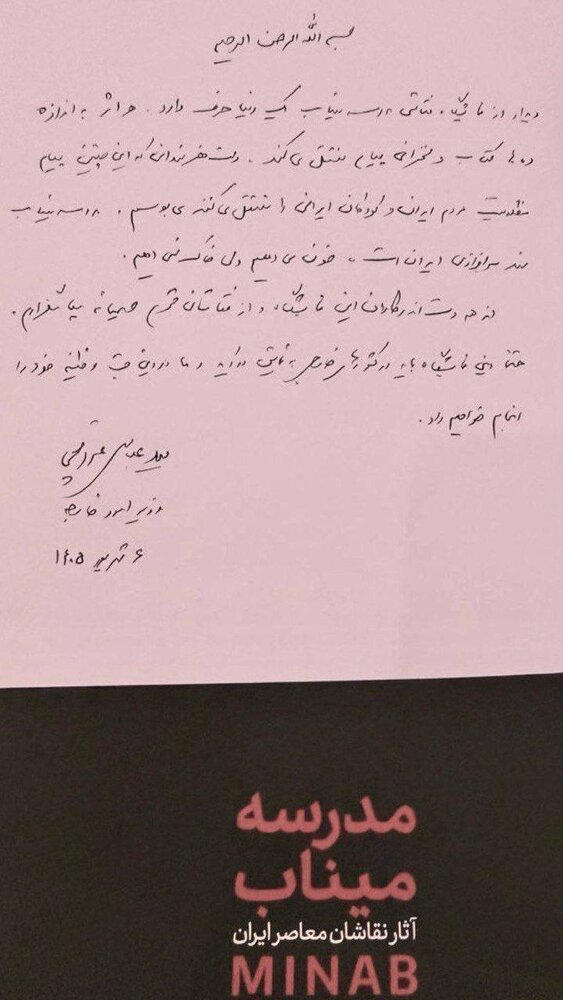 بسم الله الرحمن الرحیم
دیدار از نمایشگاه نقاشی مدرسه میناب یک دنیا حرف دارد. هر اثر به اندازه
ده‌ها کتاب و سخنرانی پیام منتقل می‌کند. دست هنرمندانی که این چنین پیام
مظلومیت مردم ایران و کودکان ایرانی را منتقل می‌کنند می‌بوسم. مدرسه میناب
سند سرافرازی ایران است، خون می دهیم ولی خاک نمی دهیم.
از همه دست اندرکاران این نمایشگاه و از نقاشان محترم صمیمانه سپاسگزارم.
حتما این نمایشگاه باید در کشورهای خارجی به نمایش درآید و ما در این جهت وظیفه خود را
انجام خواهیم داد.
سید عباس عراقچی
وزیر امور خارجه
۶ شهریور ۱۴۰۵
مدرسه
میناب
آثار نقاشان معاصر ایران
MINAB